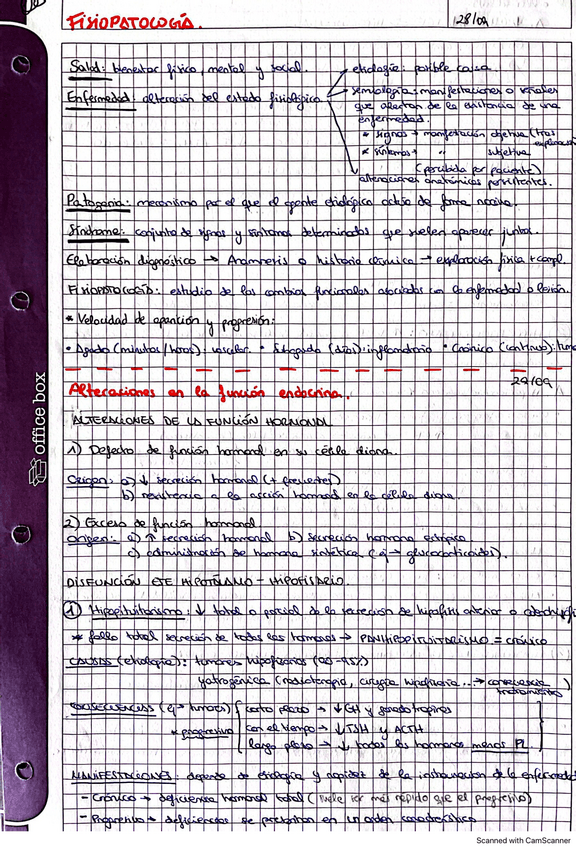 FISIOPATOLOGÍA. 28/09
Salud: bienestar físico, mental y social.
etiología: posible causa.
Enfermedad: alteración del estado fisiológico
semiología: manifestaciones o señales
que alertan de la existencia de una
enfermedad.
* signos → manifestación objetiva (tras exploración
* síntomas → " subjetiva
(percibida por paciente)
alteraciones anatómicas persistentes.
Patogenia: mecanismo por el que el agente etiológico actúa de forma nociva.
Síndrome: conjunto de signos y síntomas determinados que suelen aparecer juntos.
Elaboración diagnóstico → Anamnesis o historia clínica → exploración física + compl.
FISIOPATOLOGÍA: estudio de los cambios funcionales asociados con la enfermedad o lesión.
* Velocidad de aparición y progresión:
• Agudo (minutos/horas): vascular. • Subagudo (días): inflamatorio • Crónico (continuo):
29/09
Alteraciones en la función endocrina.
ALTERACIONES DE LA FUNCIÓN HORMONAL
1) Defecto de función hormonal en su célula diana.
Origen: a) ↓ secreción hormonal (+ frecuentes)
b) resistencia a la acción hormonal en la célula diana.
2) Exceso de función hormonal
Origen: a) ↑ secreción hormonal b) secreción hormona ectópica
c) administración de hormona sintética (ej → glucocorticoides).
DISFUNCIÓN EJE HIPOTÁLAMO - HIPOFISARIO.
① Hipopituitarismo: ↓ total o parcial de la secreción de hipófisis anterior o
* fallo total secreción de todas las hormonas → PANHIPOPITUITARISMO = crónico
CAUSAS (etiología): tumores hipofisarios (90-95%)
yatrogénica (radioterapia, cirugía hipofisaria ... → consecuencia tratamiento)
CONSECUENCIAS (ej → tumores)
corto plazo → ↓ GH y gonadotropinas
* progresivo
con el tiempo → ↓ TSH y ACTH
largo plazo → ↓ todas las hormonas menos PL.
MANIFESTACIONES: depende de etiología y rapidez de la instauración de la enfermedad
- Crónico → deficiencia hormonal total (suele ser más rápido que el progresivo)
- Progresivo → deficiencias se presentan en un orden característico
office box
Scanned with CamScanner